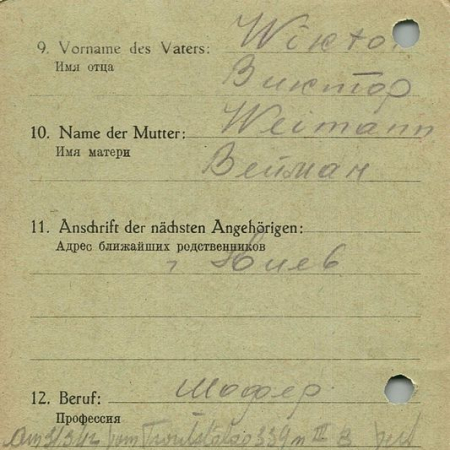 9. Vorname des Vaters: Wiktor
Имя отца
Виктор
10. Name der Mutter: Weimann
Имя матери
Вейман
11. Anschrift der nächsten Angehörigen:
Адрес ближайших родственников
г. Киев
12. Beruf: шофер
Профессия
Am 3/3/42 vom Frontstalag 339 n III B